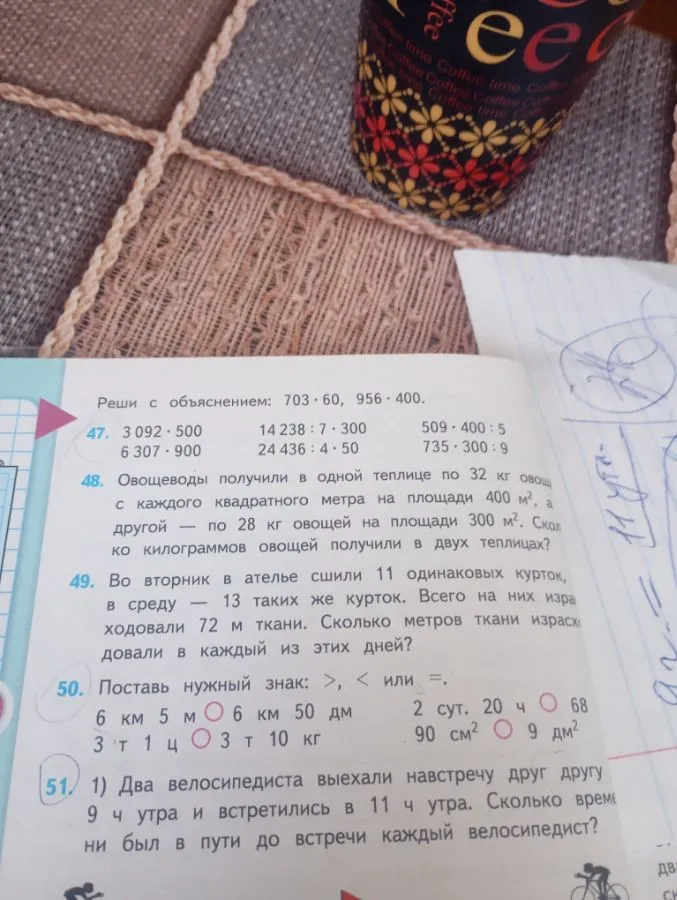 Coffee time Coffee time
Реши с объяснением: 703 · 60, 956 · 400.
47. 3 092 · 500 14 238 : 7 · 300 509 · 400 : 5
6 307 · 900 24 436 : 4 · 50 735 · 300 : 9
48. Овощеводы получили в одной теплице по 32 кг овощ
с каждого квадратного метра на площади 400 м², а
другой — по 28 кг овощей на площади 300 м². Скол
ко килограммов овощей получили в двух теплицах?
49. Во вторник в ателье сшили 11 одинаковых курток,
в среду — 13 таких же курток. Всего на них изра
ходовали 72 м ткани. Сколько метров ткани израсх
довали в каждый из этих дней?
50. Поставь нужный знак: >, < или =.
6 км 5 м ○ 6 км 50 дм 2 сут. 20 ч ○ 68
3 т 1 ц ○ 3 т 10 кг 90 см² ○ 9 дм²
51. 1) Два велосипедиста выехали навстречу друг другу
9 ч утра и встретились в 11 ч утра. Сколько време
ни был в пути до встречи каждый велосипедист?